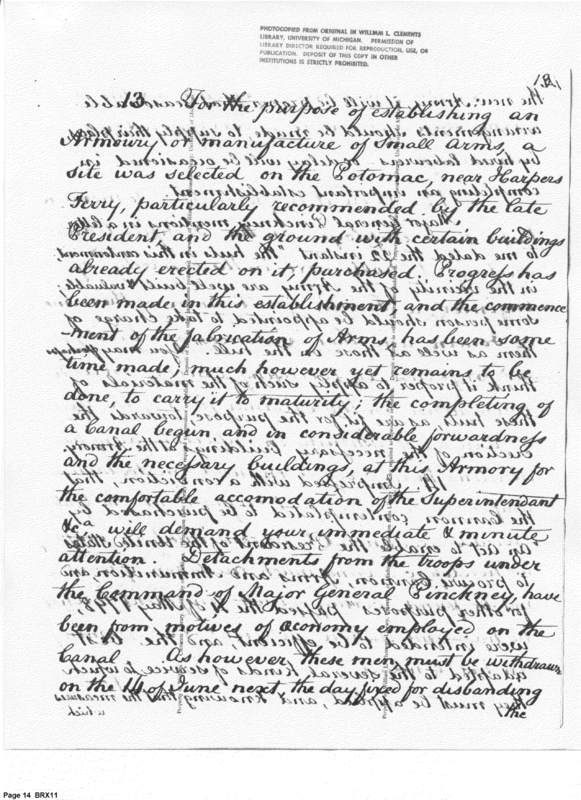 PHOTOCOPIED FROM ORIGINAL IN WILLIAM L. CLEMENTS
LIBRARY, UNIVERSITY OF MICHIGAN. PERMISSION OF
LIBRARY DIRECTOR REQUIRED FOR REPRODUCTION, USE, OR
PUBLICATION. DEPOSIT OF THIS COPY IN OTHER
INSTITUTIONS IS STRICTLY PROHIBITED.
13 For the purpose of establishing an
Armoury or manufacture of Small Arms, a
site was selected on the Potomac, near Harpers
Ferry, particularly recommended by the late
President, and the ground with certain buildings
already erected on it, purchased. Progress has
been made in this establishment, and the commence
-ment of the fabrication of Arms, has been some
time made; much however yet remains to be
done, to carry it to maturity; the completing of
a Canal begun and in considerable forwardness
and the necessary buildings, at this Armory for
the comfortable accomodation of the Superintendant
&ca will demand your immediate & minute
attention. Detachments from the troops under
the Command of Major General Pinckney, have
been from motives of œconomy employed on the
Canal. As however these men must be withdrawn
on the 14 of June next, the day fixed for disbanding
the
Page 14 BRX11